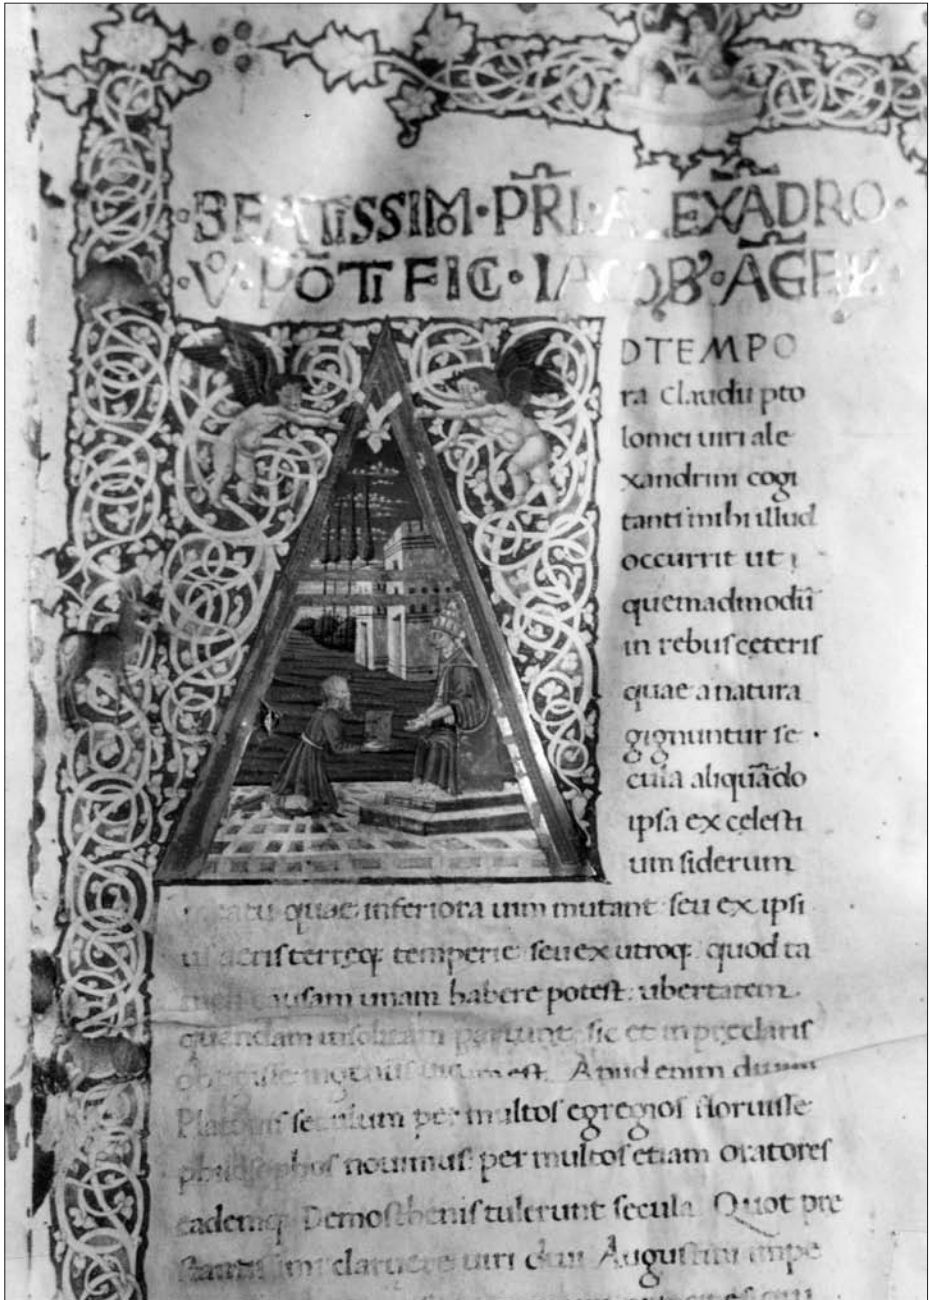 ·BEATISSIMO·PR̄I·ALEX̄ADRO·
·V°·PŌTIFICI·IACOB᾿·ĀGEL
DTEMPO
ra Claudii pto
lomei uiri ale
xandrini cogi
tanti mihi illud
occurrit ut
quemadmodū
in rebus ceteris
quae a natura
gignuntur se
cula aliquādo
ipsa ex celesti
um siderum
quae inferiora uim mutant seu ex ipsi
us aeris terręq; temperie seu ex utroq; quod ta
men causam unam habere potest: ubertatem
quendam insolitam pariunt sic et in pręclaris
Apud enim diuini
Platonis seculum per multos egregios floruisse
philosophos nouimus: per multos etiam oratores
eademq; Demosthenis tulerunt secula. Quot pre
claruere uiri diui Augustini impe